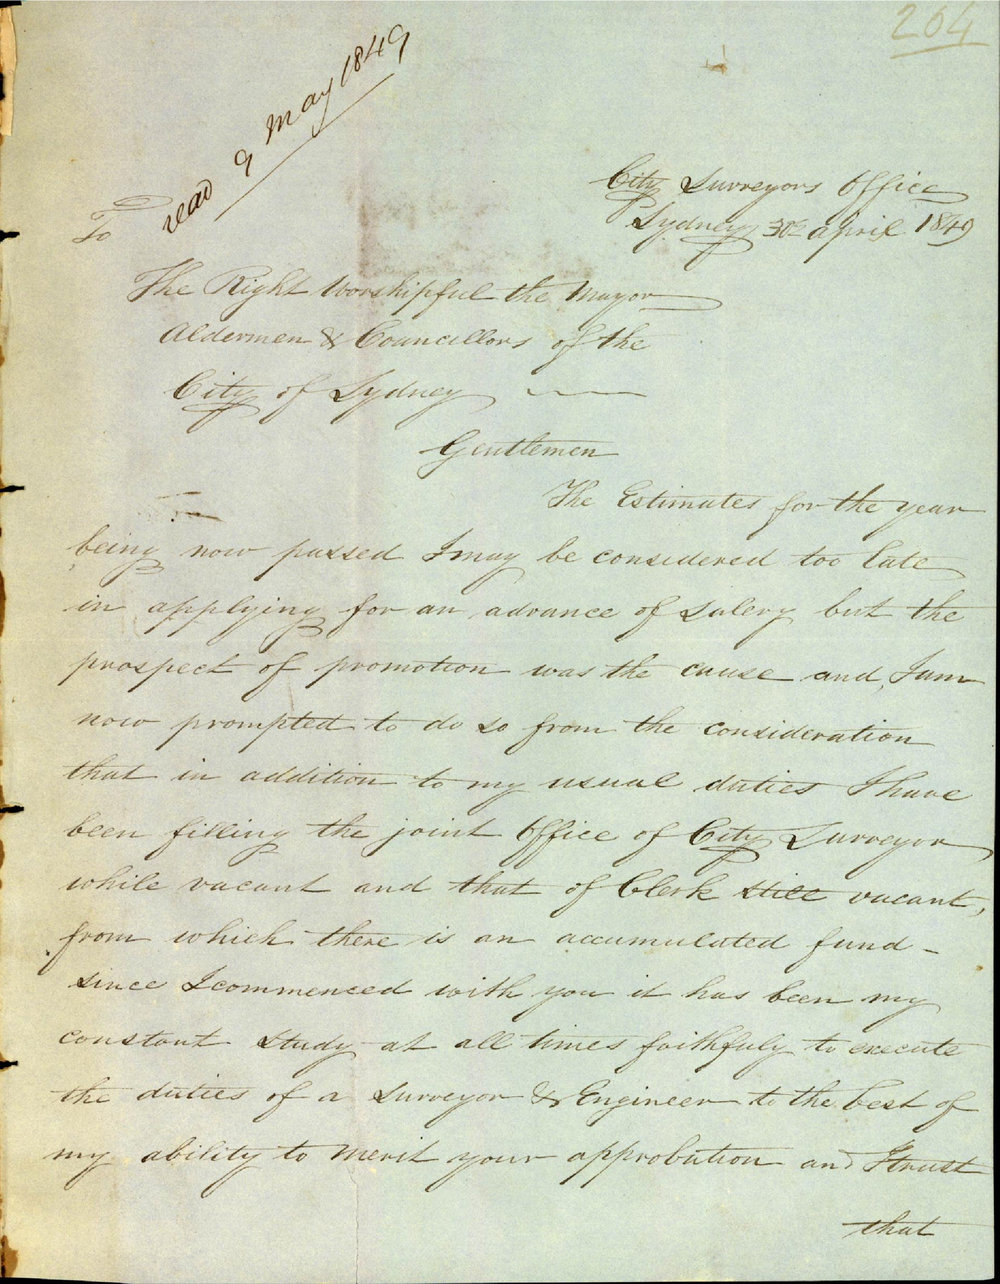 264
read 9 May 1849
City Surveyors Office
Sydney 30th April 1849
To
The Right Worshipful the Mayor
Aldermen & Councillors of the
City of Sydney
Gentlemen
The Estimates for the year
being now passed I may be considered too late
in applying for an advance of Salery but the
prospect of promotion was the cause and I am
now prompted to do so from the consideration
that in addition to my usual duties I have
been filling the joint Office of City Surveyor
while vacant and that of Clerk still vacant,
from which there is an accumulated fund -
since I commenced with you it has been my
constant study at all times faithfuly to execute
the duties of a Surveyor & Engineer to the best of
my ability to Merit your approbation and I trust
that